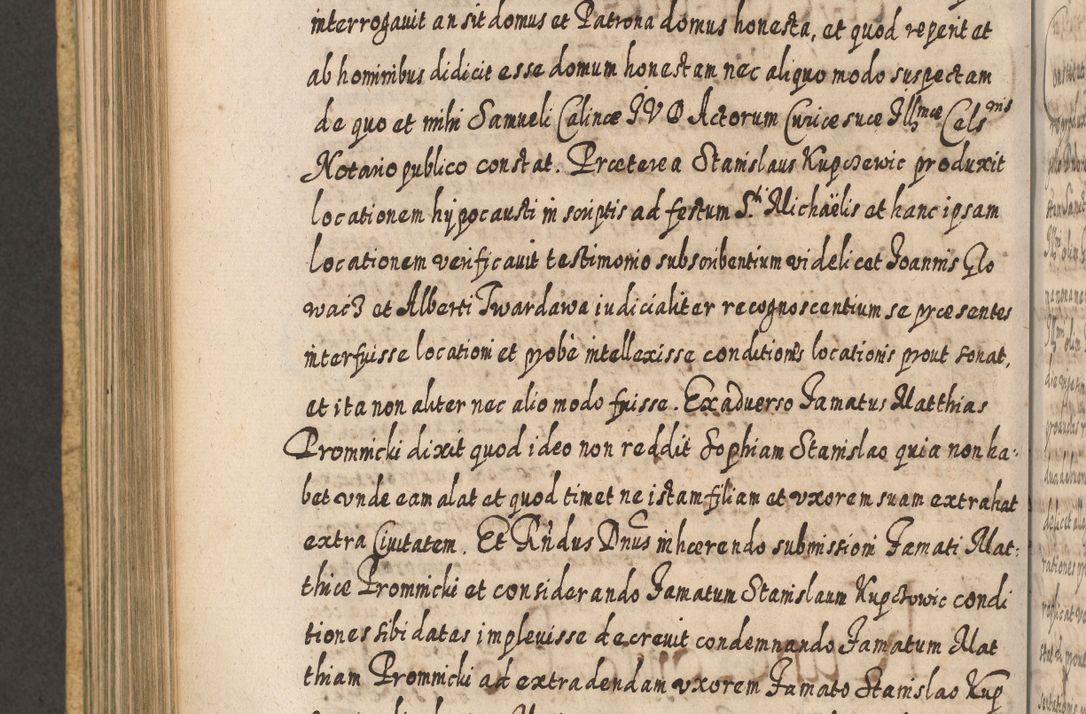 interrogauit an sit domus et Patrona domus honesta, et quod reperit et
ab hominibus didicit esse domum honestam nec aliquo modo suspectam
de quo et mihi Samueli Calincæ IVD Actorum Curiæ suæ Illmæ Celsnis
Notario publico constat. Præterea Stanislaus Kupczewic produxit
locationem hypocausti in scriptis ad festum S.ti Michaëlis et hanc ipsam
locationem verificauit testimonio subscribentium videlicet Joannis Glo
wacz et Alberti Twardawa iudicialiter recognoscentium se præsentes
interfuisse locationi et probè intellexisse conditionis locationis prout sonat,
et ita non aliter nec alio modo fuisse. Ex aduerso Famatus Matthias
Promnicki dixit quod ideo non reddit Sophiam Stanislao quia non ha:
bet vnde eam alat et quod timet ne istam filiam et vxorem suam extrahat
extra Ciuitatem. Et Rndus Dnus inhærendo submissioni Famati Mat:
thiæ Promnicki et considerando Famatum Stanislaum Kupczowic condi
tiones sibi datas impleuisse decreuit condemnando Famatum Mat
thiam Promnicki ad extradendam vxorem Famato Stanislao Kup